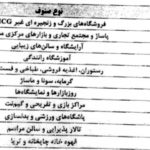 نوع صنوف
فروشگاه‌های بزرگ و زنجیره ای غیر FMCG
پاساژ و مجتمع تجاری و بازارهای مرکزی
آرایشگاه و سالن‌های زیبایی
آموزشگاه رانندگی
رستوران، اغذیه فروشی، طباخی و
گرمابه، سونا و ماساژ
روزبازارها و نمایشگاه‌ها
مراکز بازی و تفریحی و گیم‌نت
باشگاه‌های ورزشی و بدنسازی
تالار پذیرایی و سالن مراسم
قهوه خانه چایخانه و